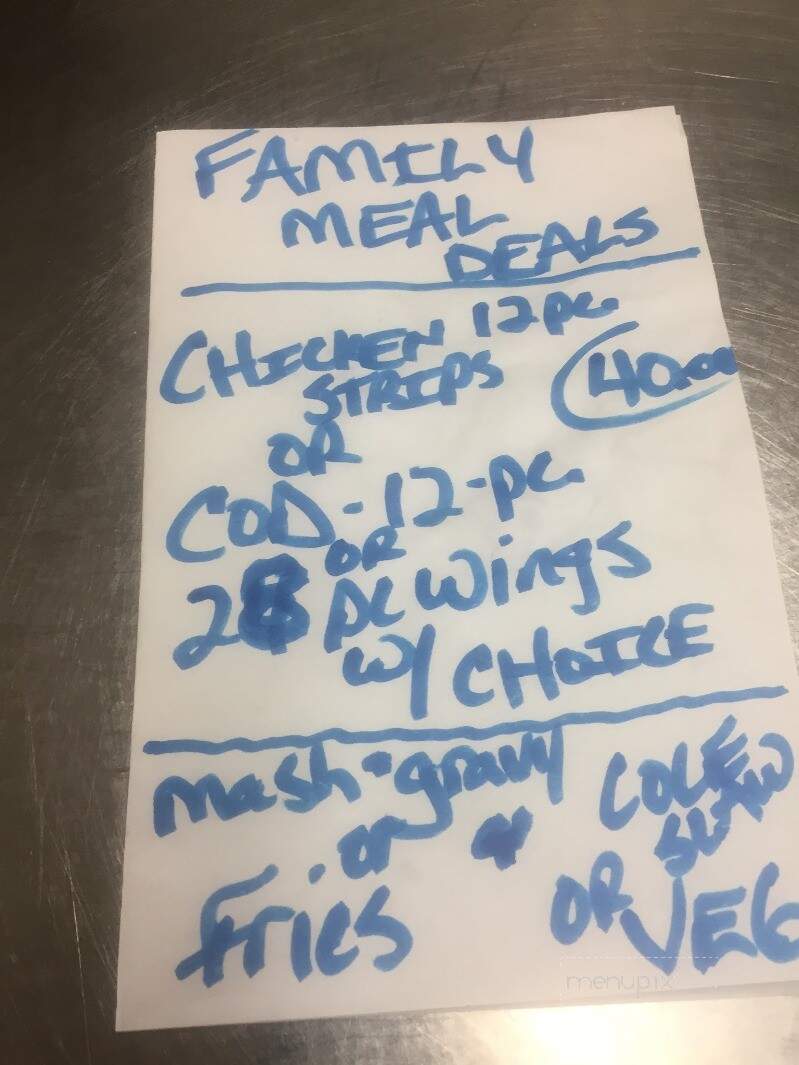 FAMILY
MEAL
DEALS
CHICKEN 12 pc.
STRIPS
40.00
OR
COD - 12 - pc.
OR
pc wings
w/ CHOICE
mash • gravy
COLE
SLAW
or
OR
fries
VEG
menupix